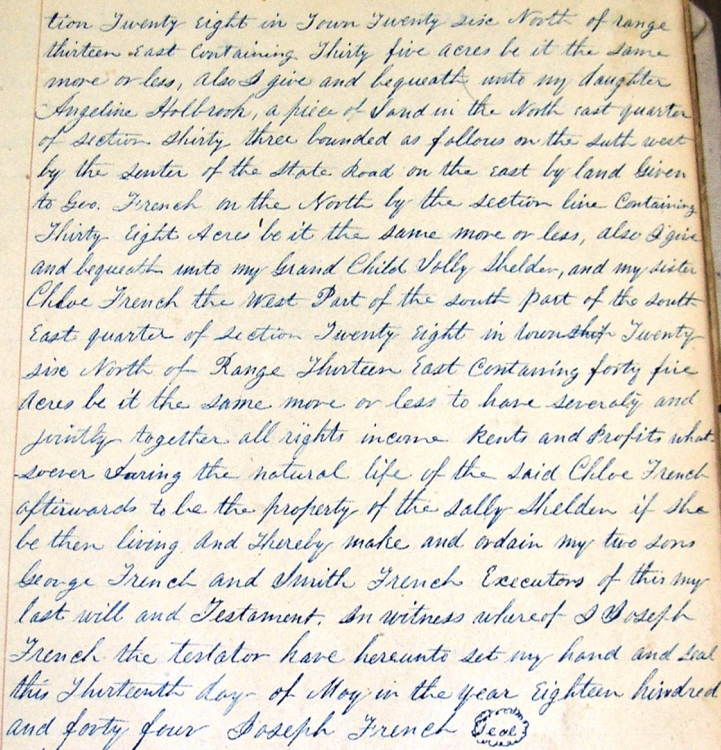 tion Twenty Eight in Town Twenty sixe North of range
thirteen East Containing Thirty five acres be it the same
more or less, also I give and bequeath unto my daughter
Angeline Holbrook, a piece of Land in the North east quarter
of section thirty three bounded as follows on the suth west
by the senter of the State Road on the East by land Given
to Geo. French on the North by the section line Containing
Thirty Eight Acres be it the same more or less, also I give
and bequeath unto my Grand Child Solly Shelden, and my sister
Chloe French the West Part of the south part of the south
East quarter of section Twenty Eight in township Twenty
sixe North of Range Thirteen East Containing forty five
Acres be it the same more or less to have severaly and
jointly together all rights income Rents and Profits what
-soever During the natural life of the said Chloe French
afterwards to be the property of the Sally Shelden if she
be then living And I hereby make and ordain my two sons
George French and Smith French Executors of this my
last will and Testament. In witness whereof I Joseph
French the testator have hereunto set my hand and seal
this Thirteenth day of May in the year Eighteen hundred
and forty four Joseph French Seal